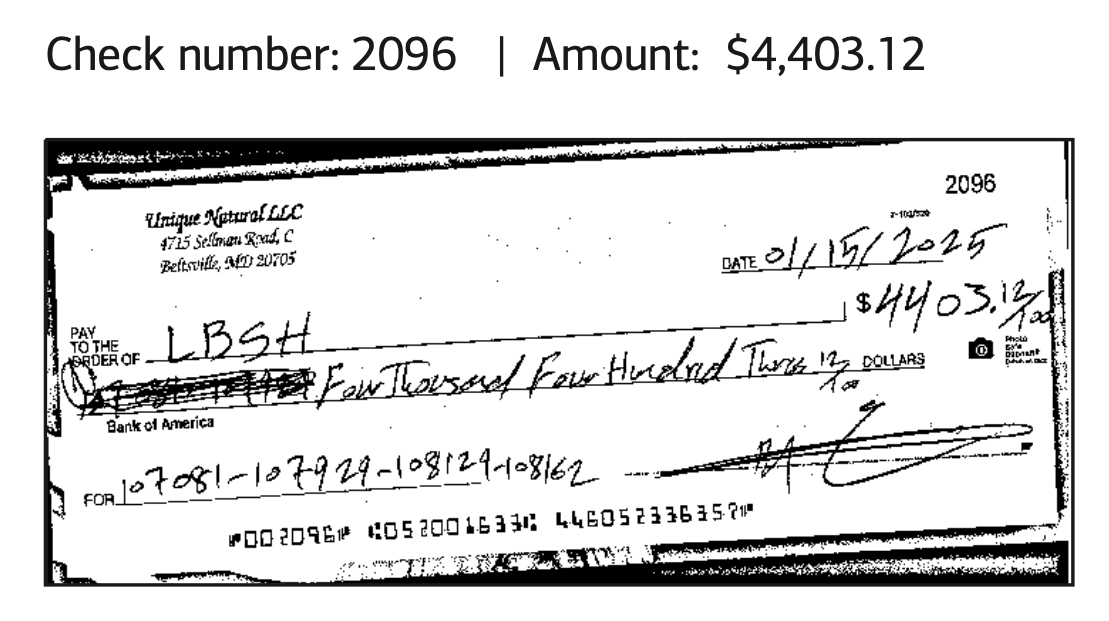 Check number: 2096 | Amount: $4,403.12
2096
Unique Natural LLC
4715 Sellman Road, C
Beltsville, MD 20705
DATE 01/15/2025
PAY TO THE ORDER OF LBSH $4403.12/100
Four Thousand Four Hundred Three 12/100 DOLLARS
Photo Safe Deposit
Bank of America
FOR 107081-107929-108129-108162
⑈002096⑈ ⑆052001633⑆ 446052336357⑈